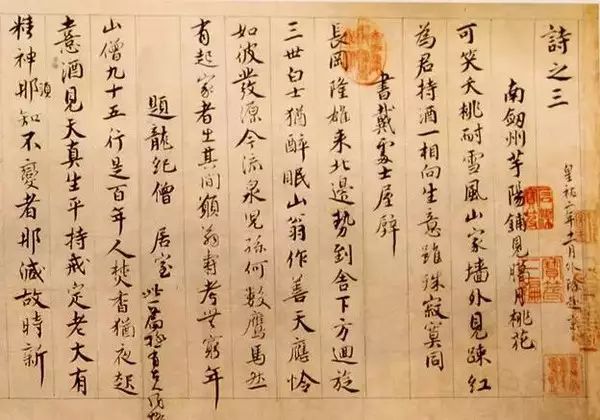 詩之三
皇祐二年十一月外除赴京
南劔州芋陽鋪見臘月桃花
可笑夭桃耐雪風山家墻外見踈紅
為君持酒一相向生意雖殊寂寞同
書戴處士屋壁
長岡隆雄來北邊勢到舍下方迴旋
三世白士猶醉眠山翁作善天應怜
如彼發源今流泉兒孫何數鷹馬然
有起家者出其間願翁壽考無窮年
題龍紀僧居室 此一篇極有古人
山僧九十五行是百年人焚香猶夜起
憙酒見天真生平持戒定老大有
精神那須知不變者那減故時新